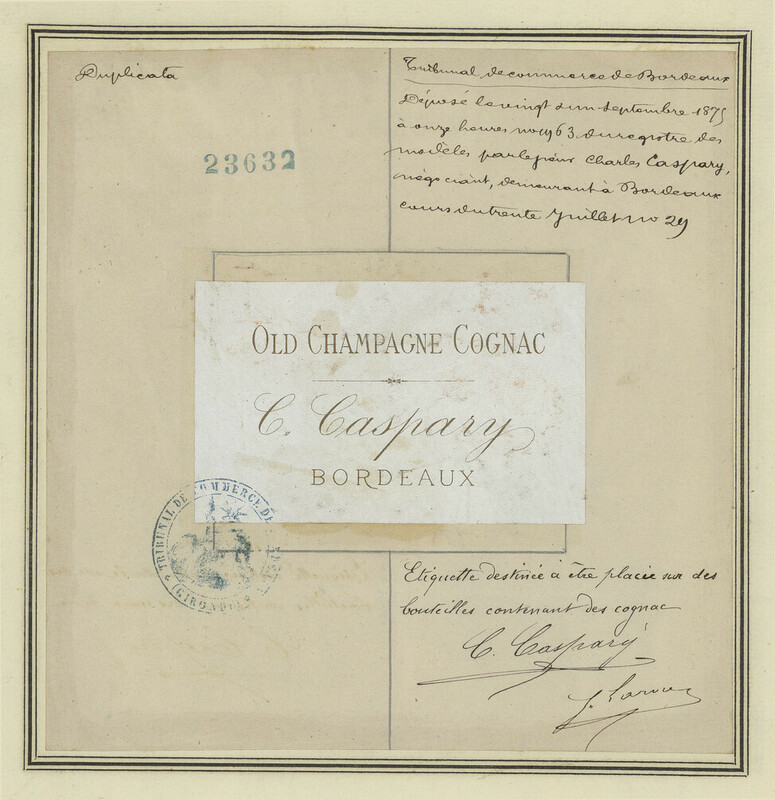 Duplicata
23632
Tribunal de commerce de Bordeaux
Déposé le vingt d'un septembre 1875
à onze heures no 1963 du registre des
modèles par le sieur Charles Caspary,
négociant, demeurant à Bordeaux
cours du trente Juillet no 29
OLD CHAMPAGNE COGNAC
C. Caspary
BORDEAUX
TRIBUNAL DE COMMERCE DE
(GIRONDE)
Etiquette destinée à être placée sur des
bouteilles contenant des cognac
C. Caspary